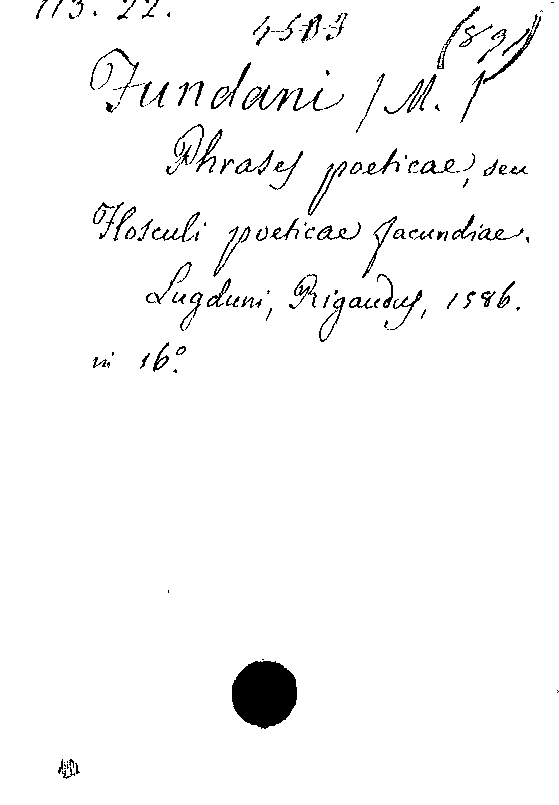 113. 22.
45B3 (891)
Fundani (M.)
Phrases poeticae, seu
Flosculi poeticae facundiae.
Lugduni, Rigaudus, 1586.
in 16°.